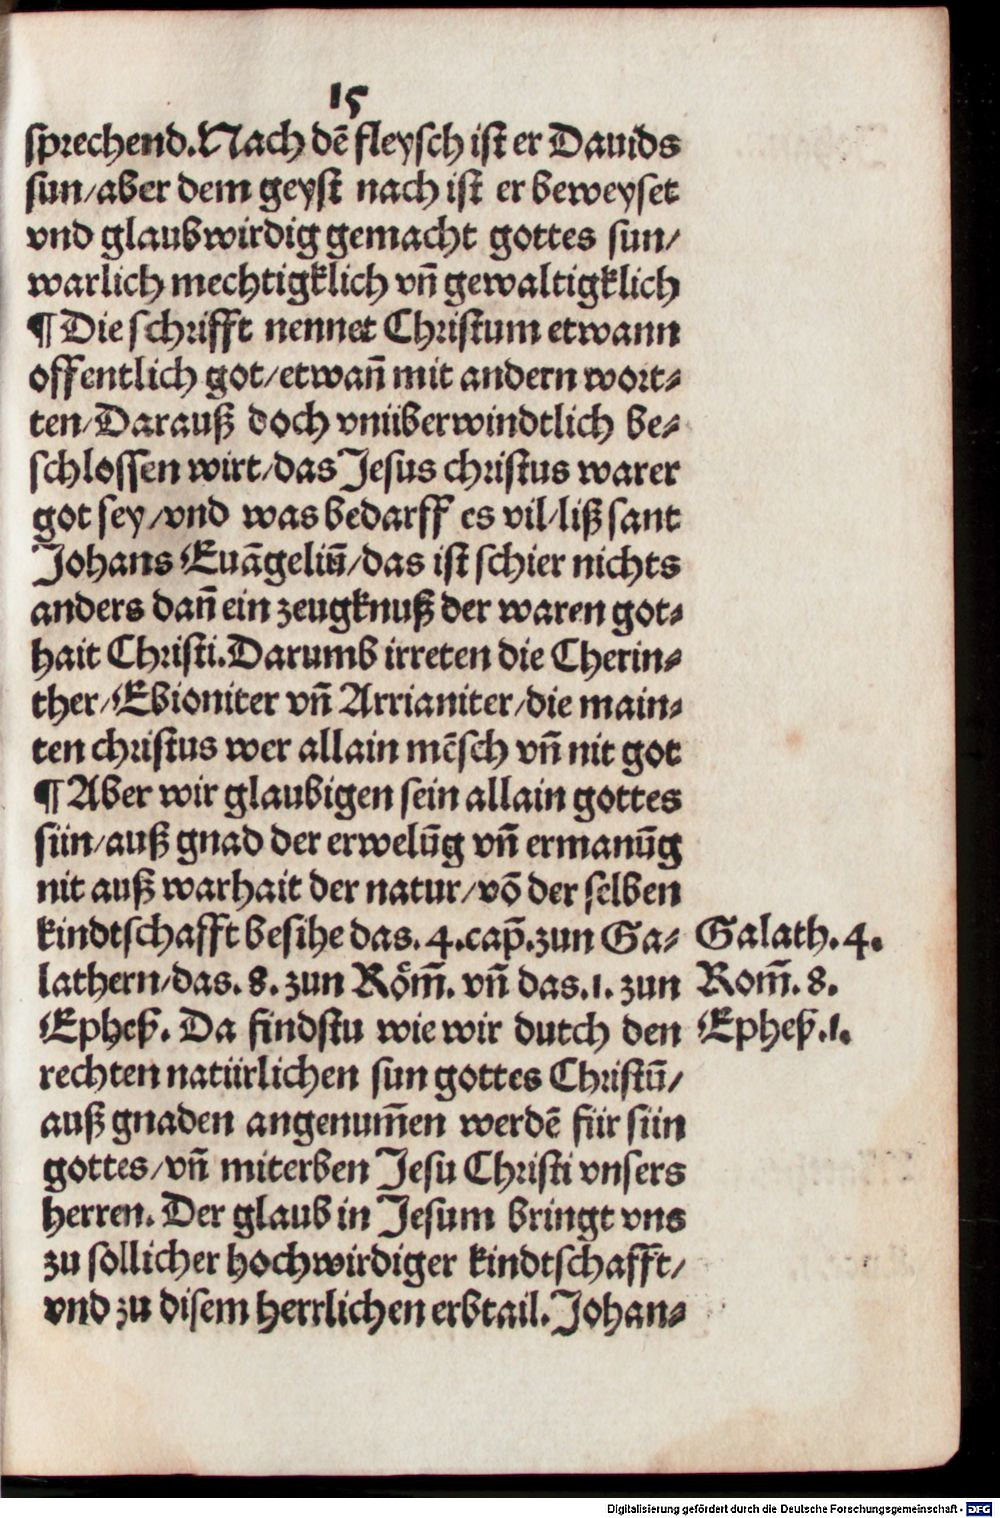 15
sprechend. Nach dē fleysch ist er Dauids
sun/aber dem geyst nach ist er beweyset
vnd glaubwirdig gemacht gottes sun/
warlich mechtigklich vñ gewaltigklich
¶ Die schrifft nennet Christum etwann
offentlich got/etwañ mit andern wort⸗
ten/Darauß doch vnüberwindtlich be⸗
schlossen wirt/das Jesus christus warer
got sey/vnd was bedarff es vil/liß sant
Johans Euāgeliū/das ist schier nichts
anders dañ ein zeugknuß der waren got⸗
hait Christi. Darumb irreten die Cherin⸗
ther/Ebioniter vñ Arrianiter/die main⸗
ten christus wer allain mēsch vñ nit got
¶ Aber wir glaubigen sein allain gottes
sün/auß gnad der erwelūg vñ ermanūg
nit auß warhait der natur/vō der selben
kindtschafft besihe das. 4. cap̄. zun Ga⸗
lathern/das. 8. zun Röm̄. vñ das. 1. zun
Epheß. Da findstu wie wir dutch den
rechten natürlichen sun gottes Christū/
auß gnaden angenum̄en werdē für sün
gottes/vñ miterben Jesu Christi vnsers
herren. Der glaub in Jesum bringt vns
zu sollicher hochwirdiger kindtschafft/
vnd zu disem herrlichen erbtail. Johan⸗
Galath. 4.
Rom̄. 8.
Epheß. 1.
Digitalisierung gefördert durch die Deutsche Forschungsgemeinschaft - DFG